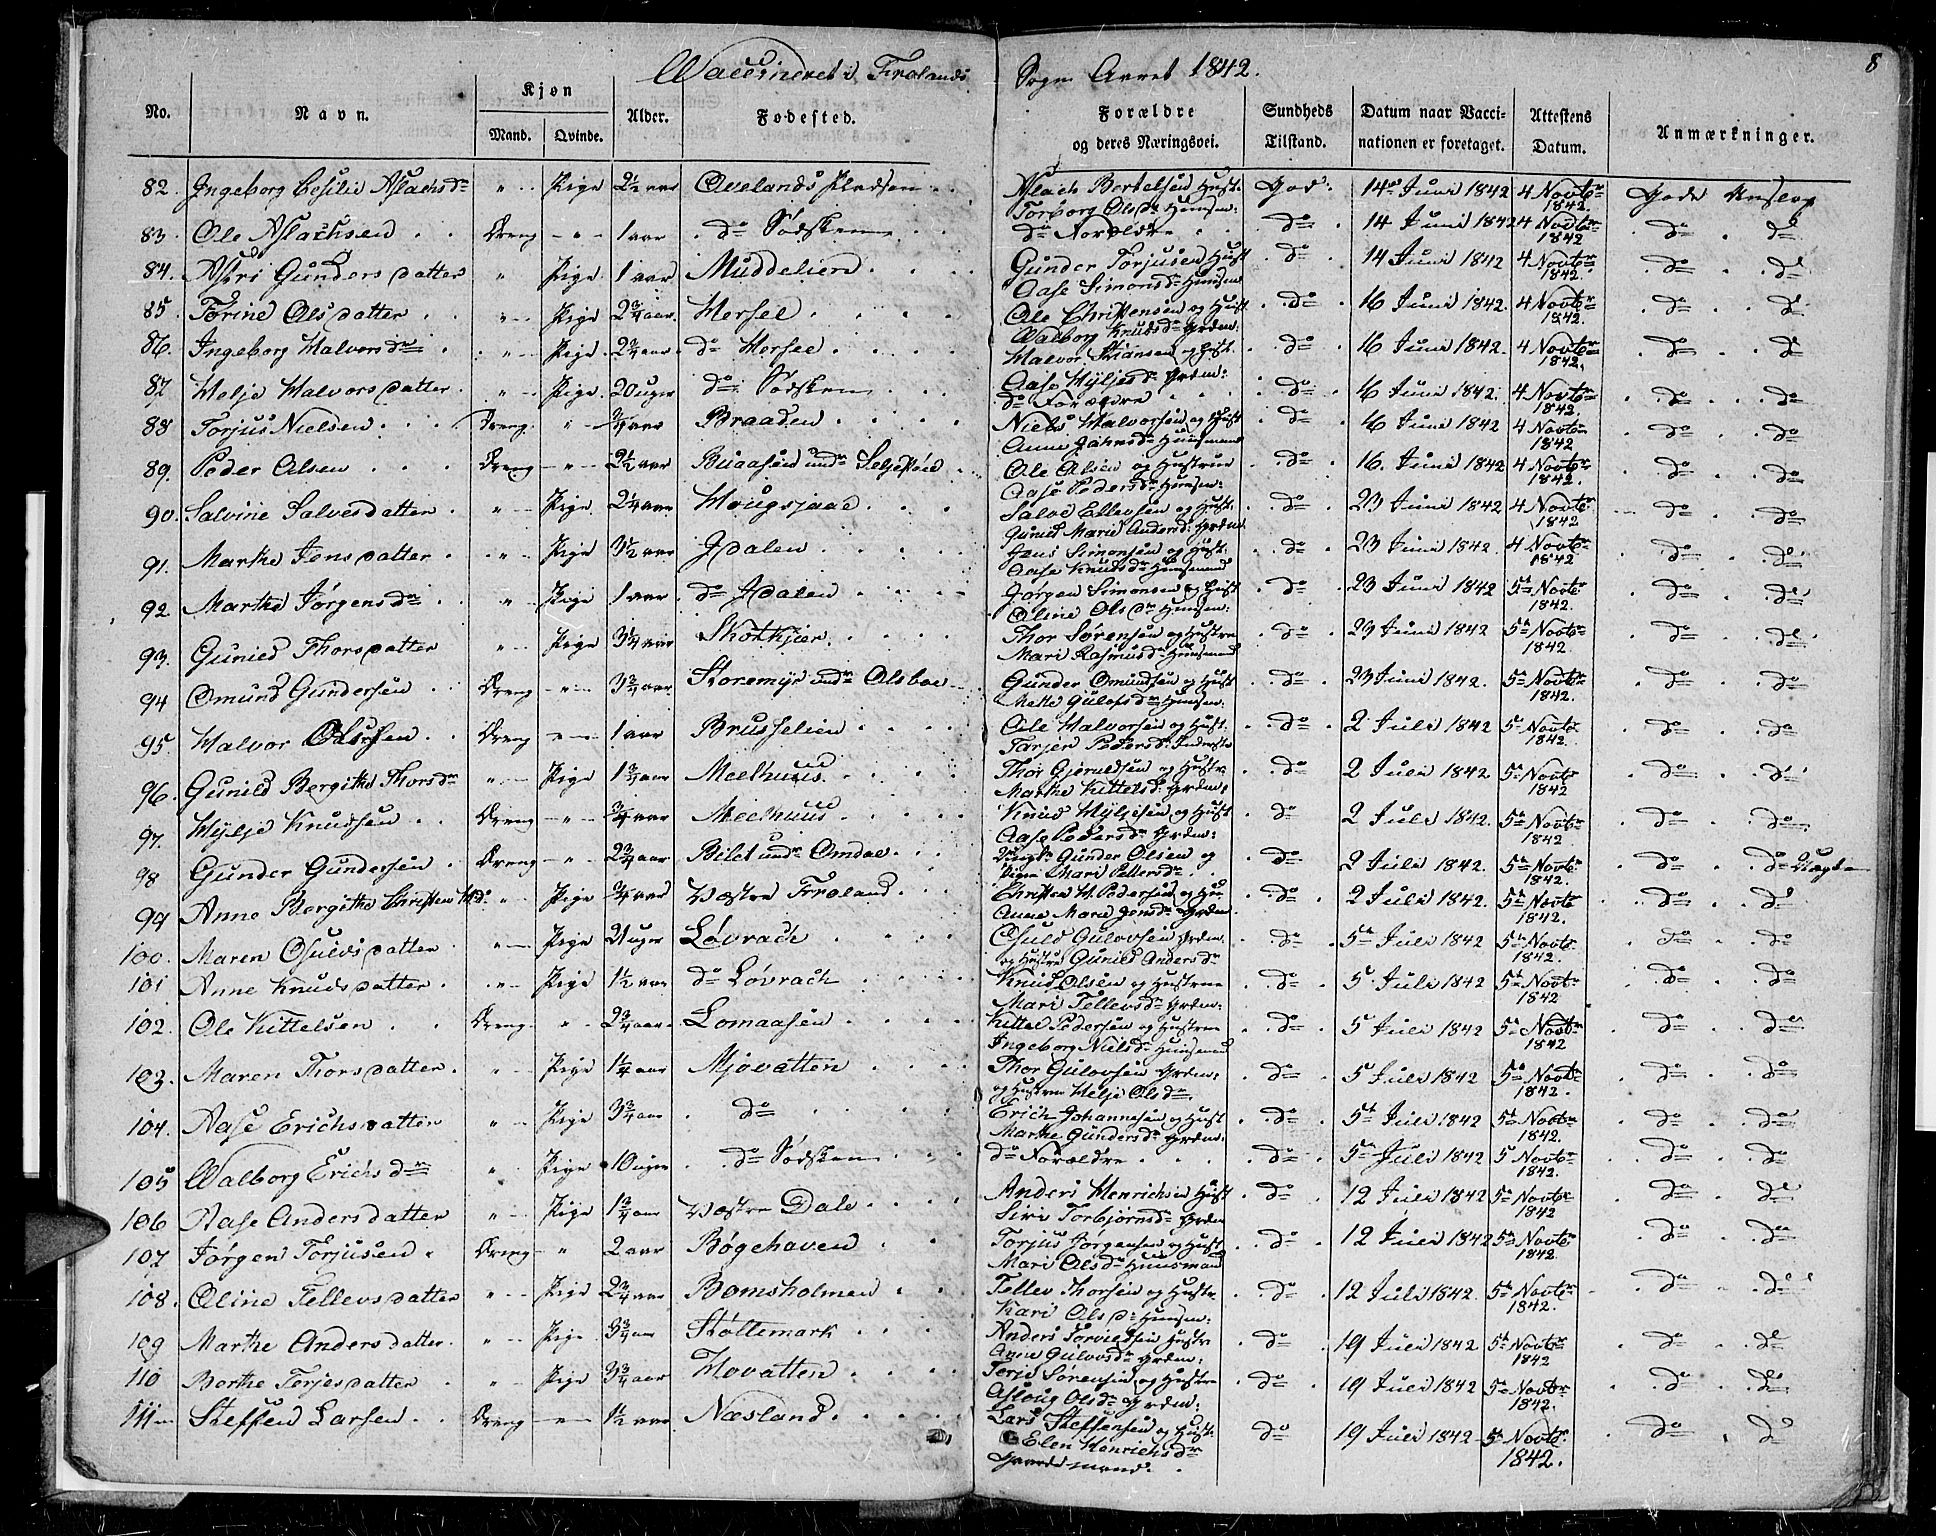 Vaccineret i Frolands Sogn Aaret 1842.
8
No. Navn. Kjøn Alder. Fødested. Forældre og deres Næringsvei. Sundheds Tilstand. Datum naar Vaccinationen er foretaget. Attestens Datum. Anmærkninger.
Mand. Qvinde.
82. Ingeborg Cesilie Aslachsdr " Pige 2½ aar Ovelands Pladsen Aslach Bertelsen Hust. Torborg Olsdr Huusm: God: 14de Juni 1842 4 Novbr 1842. Gode
83. Ole Aslachsen Dreng " 1 aar do Sødsken do Forældre do 14 Juni 1842 4 Novbr 1842 do do
84. Asbri Gundersdatter " Pige 1 aar Muddelien Gunder Torjusen Hust Aase Simonsdr Huusm do 14 Juni 1842 4 Novbr 1842. do do
85. Torine Olsdatter " Pige 2¾ aar. Hersel Ole Christensen og Hust Walborg Knudsdr Grdm: do 16 Juni 1842. 4 Novbr 1842. do do
86. Ingeborg Halvorsdr " Pige 2¾ aar. do Hersel Halvor Stiansen og Hust. Aase Hyljesdr Grdm: do 16 Juni 1842. 4 Novbr 1842. do do
87 Helje Halvorsdatter " Pige 20 uger do Sødsken do Forældre do 16 Juni 1842. 4 Novbr 1842. do do
88 Torjus Nielsen Dreng. " ¾ aar Braaden Niels Halvorsen og Hust Anne Jahnsdr Huusmand do 16 Juni 1842 4 Novbr 1842 do do
89. Peder Olsen Dreng " 2½ aar Buaasen undr Seljestøed Ole Olsen og Hustrue Aase Pedersdr Huusm: do 16. Juni 1842 4 Novbr 1842. do do
90. Salvine Salvesdatter " Pige 2¼ aar Hougsjaae Salve Ellevsen og Hust. Gunild Marie Andersdr Grdm do 23 Juni 1842 4 Novbr 1842 do do
91. Marthe Jensdatter " Pige 3½ aar Idalen Jens Simonsen og Hust. Aase Knudsdr Huusmand do 23 Juni 1842. 4 Novbr 1842 do do
92. Marthe Jørgensdr " Pige 1 aar do Idalen Jørgen Simonsen og Hust Oline Olsdr Huusm: do 23 Juni 1842 5te Novbr 1842. do do
93. Gunild Thorsdatter " Pige 3¼ aar Skotkjær Thor Sørensen og Hustru Mari Rasmusdr Huusmand do 23 Juni 1842 5te Novbr 1842. do do
94 Omund Gundersen Dreng " 3¾ aar Storemyr undr Olsboe Gunder Omundsen og Hust Mette Gulofsdr Huusm. do 23 Juni 1842. 5te Novbr 1842. do do
95. Halvor Olsen Dreng " 1 aar Brusselien Ole Halvorsen og Hust. Tarjer Pedersdr Inderste do 2 Juli 1842 5te Novbr 1842. do do
96. Gunild Bergithe Thorsdr " Pige 1¾ aar Meelhuus Thor Gjeruldsen og Hustr. Marthe Kittelsdr Grdm: do 2 Juli 1842 5te Novbr 1842 do do
97. Hylje Knudsen Dreng " ¾ aar Meelhuus Knud Hyljesen og Hust Aase Pedersdr Grdm: do 2 Juli 1842. 5te Novbr 1842 do do
98 Gunder Gundersen Dreng " 2¾ aar Bilet undr Omdal Gunder Olsen og Pige Mari Pettersdr do 2 Juli 1842. 5te Novbr 1842. do do Uægte
99 Anne Bergithe Christen Hdr " Pige ¾ aar Vestre Froland Christen H. Pedersen og Hu Anne Marie Jensdr Grdm. do 2 Juli 1842. 5te Novbr 1842. do do
100. Maren Osuldsdatter " Pige 21 uger Løvrach Osuld Gulovsen Grdm. og Hustru Gunild Andersdr do 5te Juli 1842 5te Novbr 1842. do do
101 Anne Knudsdatter " Pige 1½ aar do Løvrach Knud Olsen og Hustrue Mari Tellevsdr Grdm: do 5 Juli 1842 5te Novbr 1842 do do
102. Ole Kittelsen Dreng " 2¾ aar. Lomaasen Kittel Pedersen og Hustrue Ingeborg Nielsdr Huusmand do 5 Juli 1842 5te Novbr 1842 do do
103. Maren Thorsdatter " Pige 1¼ aar Mjøvatten Thor Gulovsen Grdm: og Hustrue Helje Olsdr do 5 Juli 1842 5te Novbr 1842. do do
104. Aase Erichsdatter " Pige 3¾ aar do Erich Johannesen og Hust Marthe Gundersdr Grdm: do 5te Juli 1842 5te Novbr 1842. do do
105 Walborg Erichsdr " Pige 10 uger do Sødsken do Forældre do 5te Juli 1842 5 Novbr 1842. do do
106 Aase Andersdatter " Pige 1¾ aar Vestre Dale Anders Henrichsen Hust Siri Torbjørnsdr Grdm do 12 Juli 1842 5te Novbr 1842 do do
107 Jørgen Torjusen Dreng " 2 aar Bøgehaven Torjus Jørgensen og Hust. Mari Olsdr Huusmand do 12 Juli 1842 5te Novbr 1842. do do
108. Oline Tellevsdatter " Pige 2¾ aar Bomsholmen Tellev Thorsen og Hustr Kari Olsdr Huusm: do 12 Juli 1842. 5te Novbr 1842. do do
109 Marthe Andersdatter " Pige 3¾ aar Støltemark Anders Torvildsen Hustr Anne Gulovsdr Grdm: do 19 Juli 1842 5te Novbr 1842 do do
110 Berthe Terjesdatter " Pige 3¾ aar Hovatten Terje Sørensen og Hustru Asloug Olsdr Grdm: do 19 Juli 1842 5te Novbr 1842. do do
111 Steffen Larsen Dreng " 1½ aar Næsland Lars Steffensen og Hust. Elen Henrichsdr Gaardmand. do 19 Juli 1842 5te Novbr 1842. do do